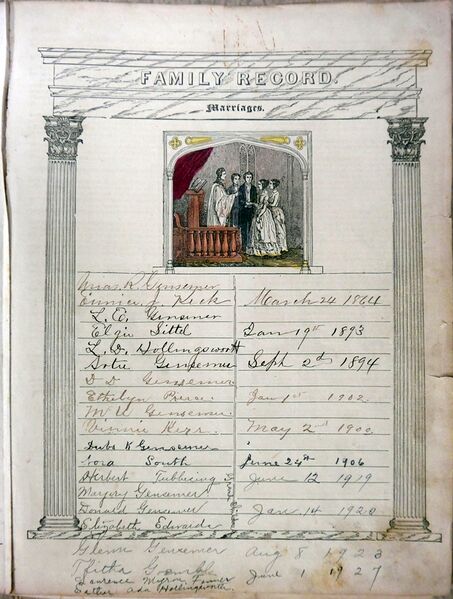 FAMILY RECORD.
Marriages.
R. Gensemer
Eunice J. Keck March 24 1864
L. E. Gensemer
Elgie Jan 19th 1893
L. D. Hollingsworth
Artie Gensemer Sept 2d 1894
D D Gensemer
Ethelyn Pierce. Jan 1st 1902.
Gensemer
Winnie Kerr. May 2nd 1900.
K Gensemer
South June 24th 1906
Herbert June 12 1919
Marjory Gensemer
Donald Gensemer Jan 14 1920
Elizabeth Edwards
Glenn Gensemer Aug 8 1923
June 1 1927
Lawrence Myron
Esther Ada Hollingsworth